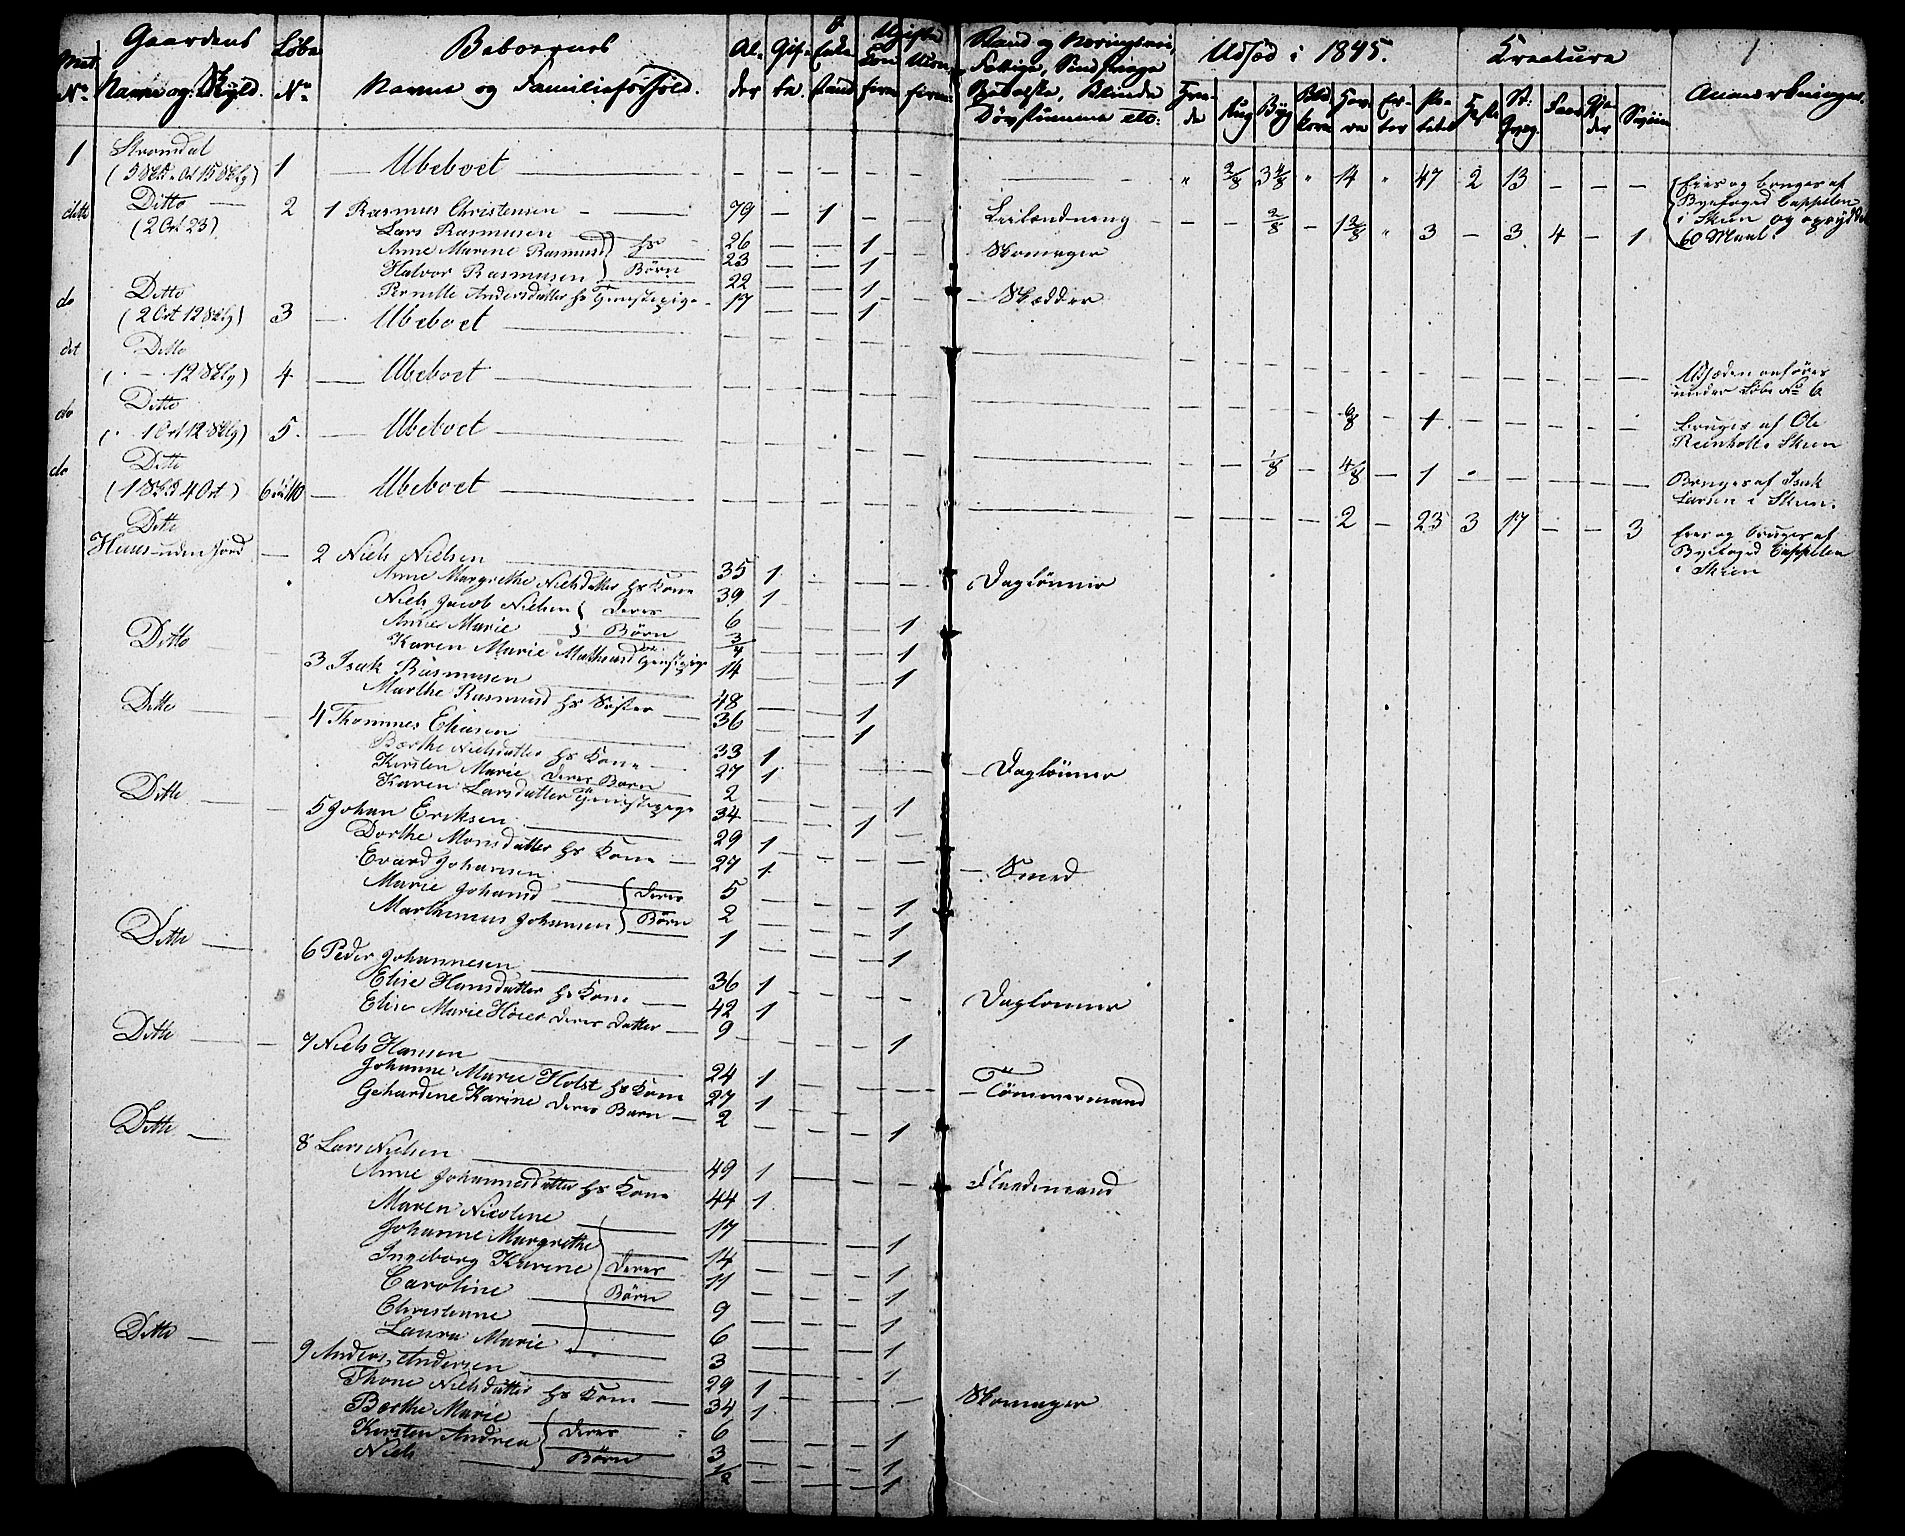 Gaardens Løbe Beboernes Al- Gif- Enke Ugifte Stand og Næringsvei, Udsæd i 1845. Kreature 1
Mat. Navne og Skyld. No Navne og Familieforhold. der te stand Fattige, Anmærkninger.
No Døvstumme etc: Rug Byg Er- ter Po- teter Heste Faar Sviin
1 Stromdal 1 Ubeboet 2/8 3 4/8 14 47 2 13 Eies og bruges af
Byefoged Cappelen
i Skien og
60 Maal.
ditto Ditto 2 1 Rasmus Christensen 79 1 2/8 1 2/8 3 3 4 1
(2 Ort 23)
Lars Rasmusen 26 1 Skomager
Anne Marine Rasmusd hs 23 1
Halvor Rasmusen Børn 22 1 Skrædder
Pernille Andersdatter hs Tjenestepige 17 1
do Ditto 3 Ubeboet
(2 Ort 12 Skg)
Ditto 4 Ubeboet Udsæden anføres
(12 Skg) under Løbe No 6
do Ditto 5. Ubeboet 6/8 1 Bruges af Ole
(1 Ort 12 Skg) Skien
do Ditto Ubeboet 1/8 4/8 1 Bruges af Isak
Larsen i Skien.
Ditto 2 23 3 17 3 Eies og bruges af
Byefoged Cappelen
i Skien
Huus uden Jord 2 Niels Nielsen 35 1 Daglønner
Anne Margrethe Nielsdatter hs Kone 39 1
Niels Jacob Nielsen Deres 6 1
Anne Marie Børn 3/4 1
Karen Marie Mathisd Tjenstpige 14 1
Ditto 3 Isak Rasmusen 48 1
Marthe Rasmusd hs Søster 36 1
Ditto 4 Thommes Eliasen 33 1 Daglønner
Berthe Nielsdatter hs Kone 27 1
Kirsten Marie deres Barn 2 1
Karen Larsdatter Tjenstepige 34 1
Ditto 5 Johan Eriksen 29 1 Smed
Dorthe Monsdatter hs Kone 27 1
Evard Johansen 5 1
Marie Johansd Deres 2 1
Marthinus Johansen Børn 1 1
Ditto 6 Peder Johannesen 36 1 Daglønner
Elise Hansdatter hs Kone 42 1
Elise Marie Høier deres Datter 9 1
Ditto 7 Niels Hansen 24 1 Tømmermand
Johanne Marie Holst hs Kone 27 1
Gehardine Karine deres Barn 2 1
Ditto 8 Lars Nielsen 49 1 Flaademand
Anne Johannesdatter hs Kone 44 1
Maren Nicoline 17 1
Johanne Margrethe 14 1
Ingeborg Karine Deres 11 1
Caroline Børn 9 1
Christiane 6 1
Laura Marie 3 1
Ditto 9 Anders Andersen 29 1 Skomager
Thone Nielsdatter hs Kone 34 1
Berthe Marie 6 1
Kirsten Andrea Deres 3 1
Niels Børn 1/2 1